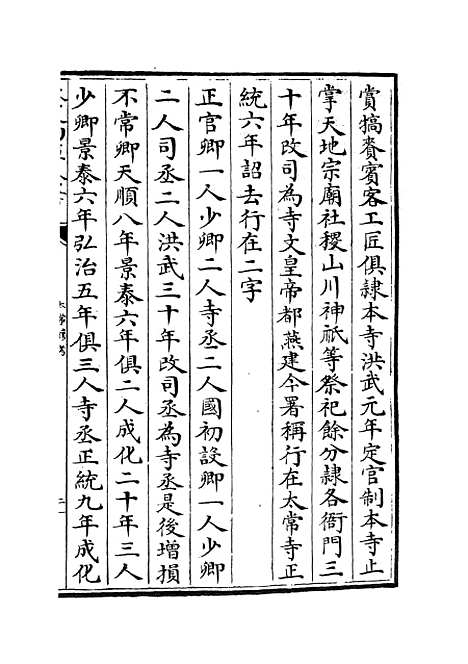 賞犒賚賓客工匠俱隷本寺洪武元年定官制本寺止
掌天地宗廟社稷山川神祇等祭祀餘分隷各衙門三
十年改司為寺文皇帝都燕建今署稱行在太常寺正
統六年詔去行在二字
正官卿一人少卿二人寺丞二人國初設卿一人少卿
二人司丞二人洪武三十年改司丞為寺丞是後增損
不常卿天順八年景泰六年俱二人成化二十年三人
少卿景泰六年弘治五年俱三人寺丞正統九年成化